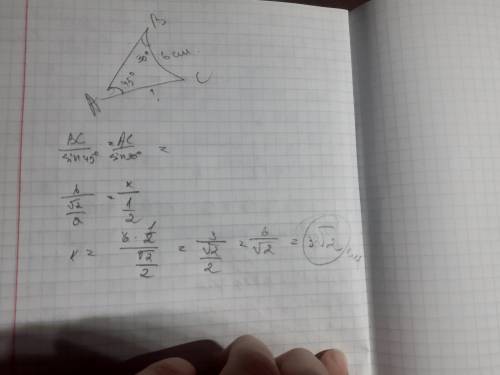 B
30°
6 см.
45°
A
?
C
BC/sin45° = AC/sin30° =
6/(√2/2) = x/(1/2)
x = (6 · 1/2)/(√2/2) = 3/(√2/2) = 6/√2 = 3√2